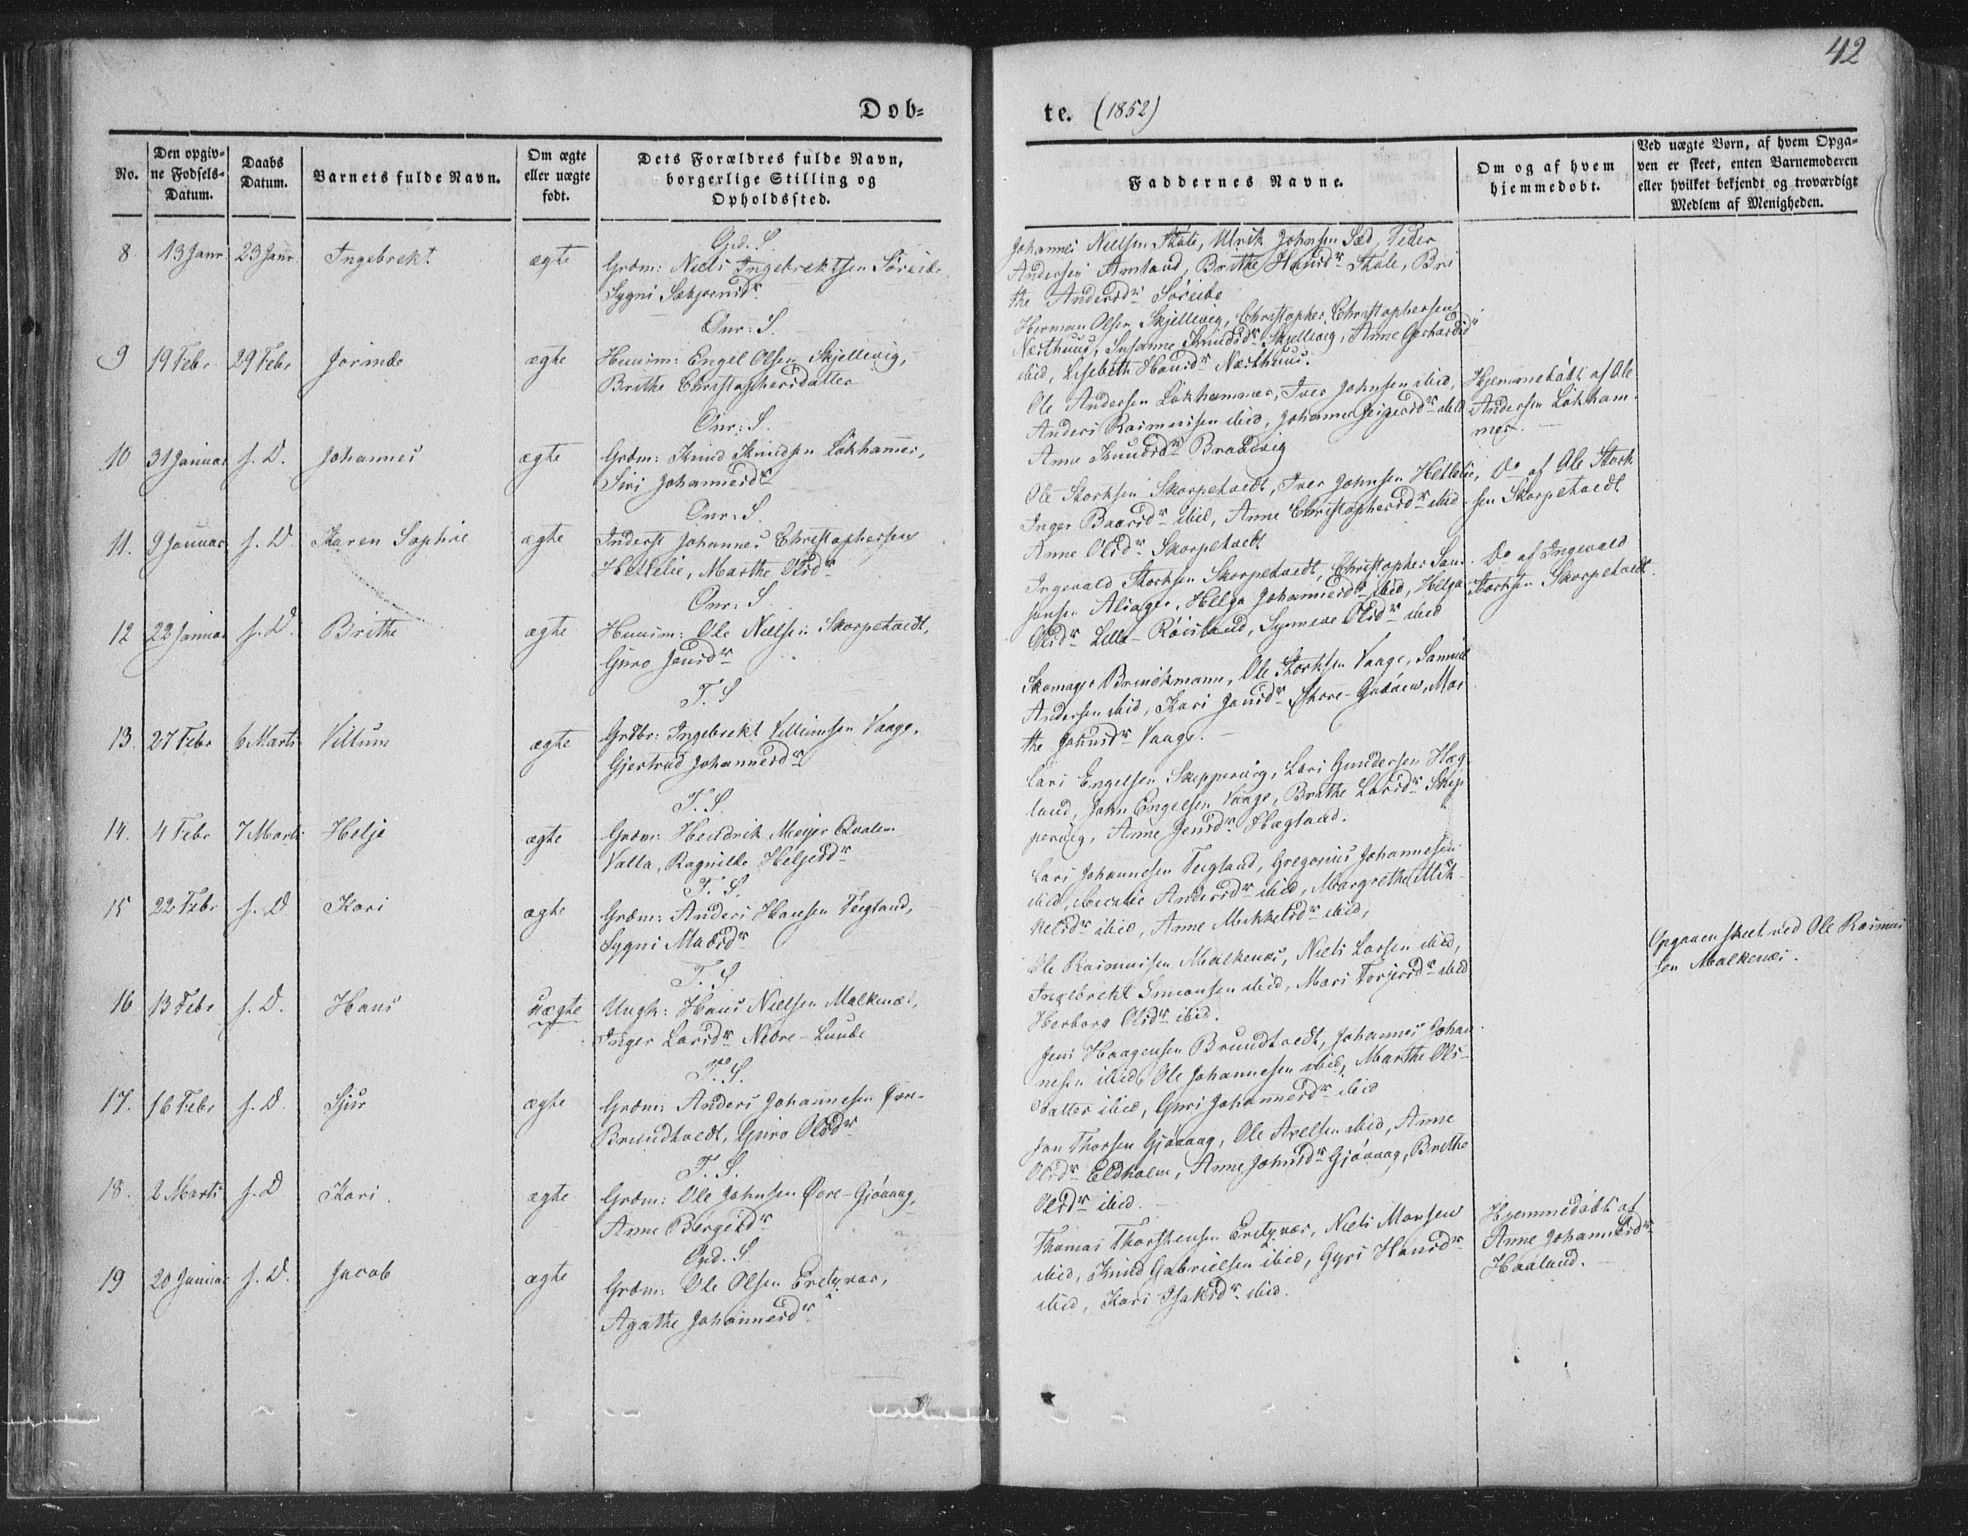 42
Døb-
te. (1852)
No.
Den opgiv-
ne Fødsels-
Datum.
Daabs
Datum.
Barnets fulde Navn.
Om ægte
eller uægte
født.
Dets Forældres fulde Navn,
borgerlige Stilling og
Opholdssted.
Faddernes Navne.
Om og af hvem
hjemmedøbt.
Ved uægte Børn, af hvem Opga-
ven er skeet, enten Barnemoderen
eller hvilket bekjendt og troværdigt
Medlem af Menigheden.
8 13 Janr 23 Janr Ingebrekt ægte
Grdm: Niels Ingebrektsen Söreide
Sygni
Johannes Nielsen Stole, Ulrik Johnsen Sæd, Peder
Andersen Amland, Brithe Hansdr Stole, Bri
the Andersdr Söreide
9 19 Febr 29 Febr Jorinde ægte
S.
Huusm: Engel Olsen Skjellevig,
Brithe Christophersdatter
Herman Olsen Skjellevig, Christopher Christophersen
Næsthuus, Susanne Knudsdr Skjellevig, Anne Gerhardsdr
ibid, Lisebeth Hansdr Næsthuus.
10 31 Januar s. D. Johannes ægte
S.
Grdm: Knud Knudsen Lökhamer,
Siri Johannesdr
Ole Andersen Lökhammer, Iver Johnsen ibid,
Anders Rasmussen ibid, Johanne ibid
Anne Knudsdr Brandvig
Hjemmedöbt af Ole
Andersen Lökham-
mer.
11. 9 Januar s. D. Karen Sophie ægte
S.
Inderst Johannes Christophersen
Hellelie, Marthe Olsdr
Ole Storksen Skorpetvedt, Iver Johnsen Hellelie,
Inger Baardr ibid, Anne Christophersdr ibid
Anne Olsdr Skorpetvedt
Do af Ole Stork
sen Skorpetvedt
12 22 Januar s. D. Brithe ægte
S.
Huusm: Ole Nielsen Skorpetvedt,
Guro Jensdr
Ingevald Storksen Skorpetvedt, Christopher Sam-
sonsen Alsager, Helga Johannesdr ibid, Helga
Olsdr Lille-Röisland, Synneve Olsdr ibid
Do af Ingevald
Storksen Skorpetvedt.
13. 27 Febr 6 Marts Villum ægte
T. S
Grdbr: Ingebrekt Villumsen Vaage,
Gjertrud Johannesdr
Skomager Brinckmann, Ole Storksen Vaage, Samuel
Andersen ibid, Kari Jansdr Store-Gudöen, Mar
the Johnsdr Vaage.
14. 4 Febr 7 Marts Helje ægte
T. S
Grdm: Hendrik Meyer Qvalen
Valla, Ragnilde Heljesdr
Lars Engelsen Skippervig, Lars Gundersen Hæg
land, John Engelsen Vaage, Brithe Larsdr Skip
pervig, Anne Jensdr Hægland.
15 22 Febr s. D Kari ægte
T. S
Grdm: Anders Hansen Teigland,
Sygni Madsdr
Lars Johannesen Teigland, Gregorius Johannesen
ibid, Cecilie Andersdr ibid, Margrethe Mik-
kelsdr ibid, Anne Mikkelsdr ibid,
16 13 Febr s. D. Hans uægte
T. S.
Ungk: Hans Nielsen Malkenæs,
Inger Larsdr Nedre-Lunde
Ole Rasmussen Malkenæs, Niels Larsen ibid,
Ingebrekt Simonsen ibid, Mari Torjersdr ibid
Herborg Olsdr ibid.
Opgaven skeet ved Ole Rasmus
sen Malkenæs.
17. 16 Febr s. D. Sjur ægte
T. S.
Grdm: Anders Johannesen Övre-
Brundtvedt, Guro Olsdr
Jens Haagensen Brundtvedt, Johannes Johan
nesen ibid, Ole Johannesen ibid, Marthe Ols-
datter ibid, Guri Johannesdr ibid
18. 2 Marts s. D Kari ægte
T. S.
Grdm: Ole Johnsen Övre-Gjövaag,
Anne Børgesdr
Jan Thorsen Gjövaag, Ole Axelsen ibid, Anne
Olsdr Eldholm, Anne Johnsdr Gjövaag, Brithe
Olsdr ibid.
19 20 Januar s. D. Jacob ægte
S
Grdm: Ole Olsen Eretzvær,
Agathe Johannesdr
Thomas Thorstensen Eretzvær, Niels Monsen
ibid, Knud Gabrielsen ibid, Gyri Hansdr
ibid, Kari Isaksdr ibid.
Hjemmedöbt af
Anne Johannesdr
Haaland.